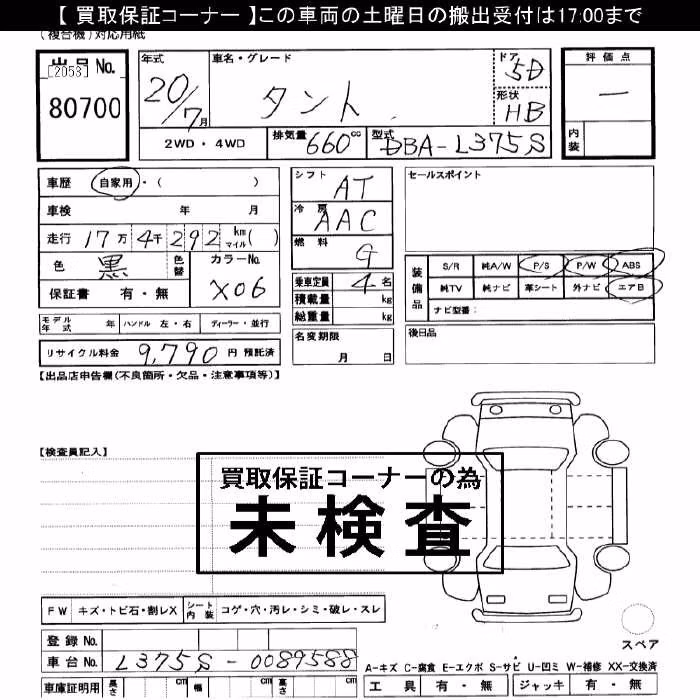 【 買取保証コーナー 】この車両の土曜日の搬出受付は17:00まで
(複合機)対応用紙
出品No. [2053] 80700
年式 20/7月
車名・グレード タント
ドア 5D
形状 HB
評価点 一
内装
2WD・4WD
排気量 660cc
型式 DBA-L375S
車歴 自家用・( )
車検 年 月
走行 17万4千292 km マイル( )
色 黒 色替 カラーNo. X06
保証書 有・無
シフト AT
冷房 AAC
燃料 G
乗車定員 4名
積載量 kg
総重量 kg
セールスポイント
装備品 S/R 純A/W P/S P/W ABS
純TV 純ナビ 革シート 外ナビ エアB
ナビ型番:
モデル年式 年 ハンドル 左・右 ディーラー・並行
名変期限 月 日
後日品
リサイクル料金 9,790 円 預託済
【出品店申告欄(不良箇所・欠品・注意事項等)】
【検査員記入】
買取保証コーナーの為
未検査
FW キズ・トビ石・割レX シート内装 コゲ・穴・汚レ・シミ・破レ・スレ
スペア
登録No.
車台No. L375S-0089588
A-キズ C-腐食 E-エクボ S-サビ U-凹ミ W-補修 XX-交換済
車庫証明用 長さ cm 幅 cm 高さ cm
工具 有・無 ジャッキ 有・無